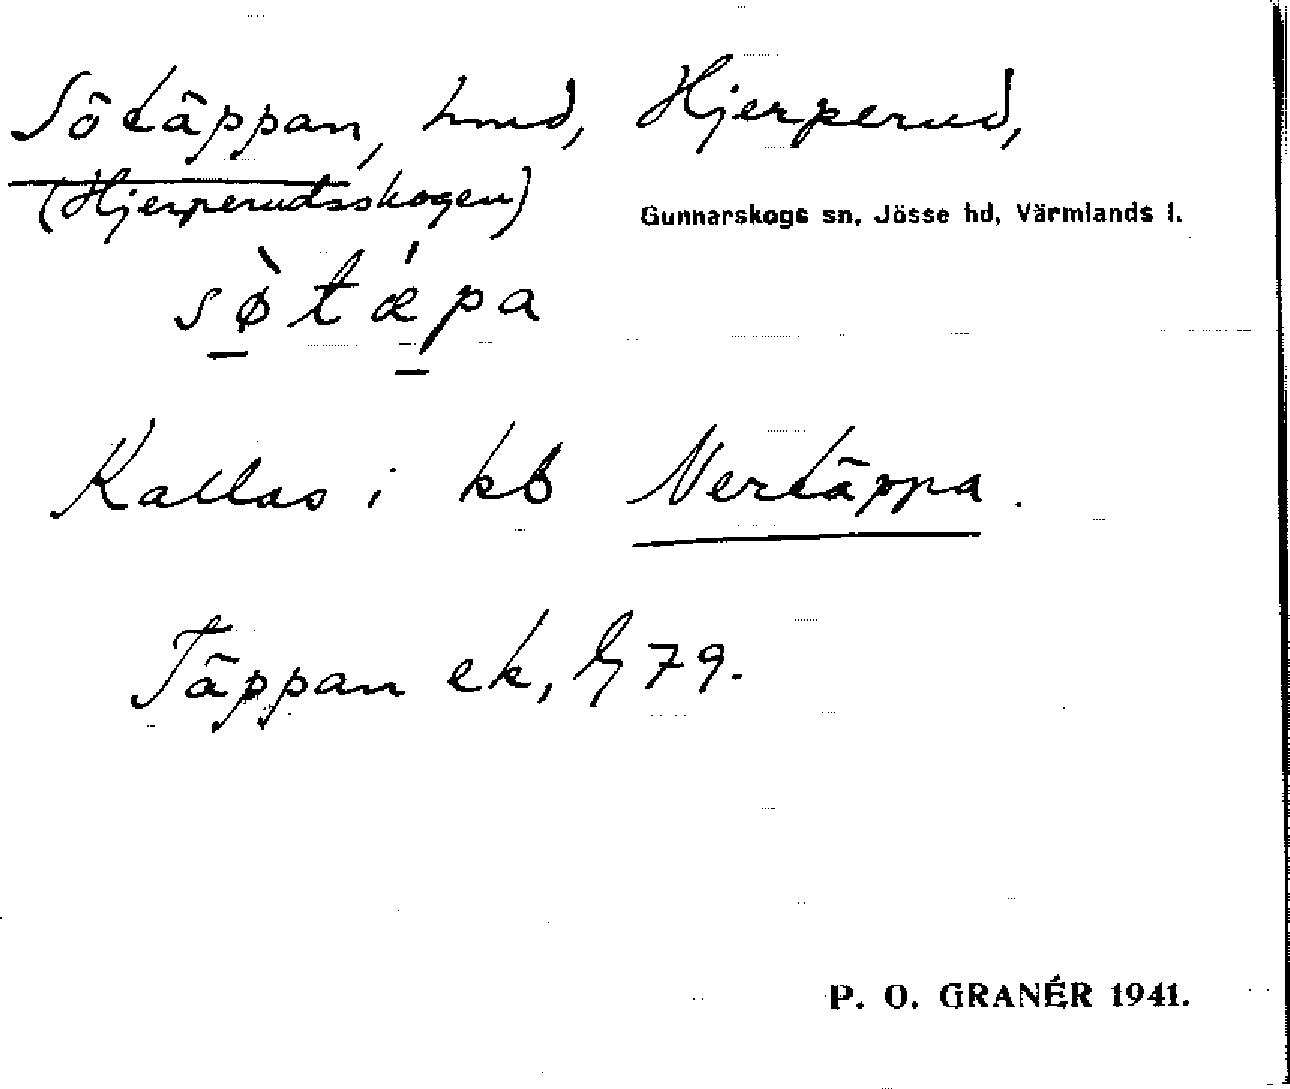 Sötäppan, hmd, Hjerperud,
(Hjerperudsskogen)
Gunnarskogs sn, Jösse hd, Värmlands l.
sø̀tǽpa
Kallas i kb Nertäppa.
Täppan ek, 79.
P. O. GRANÉR 1941.